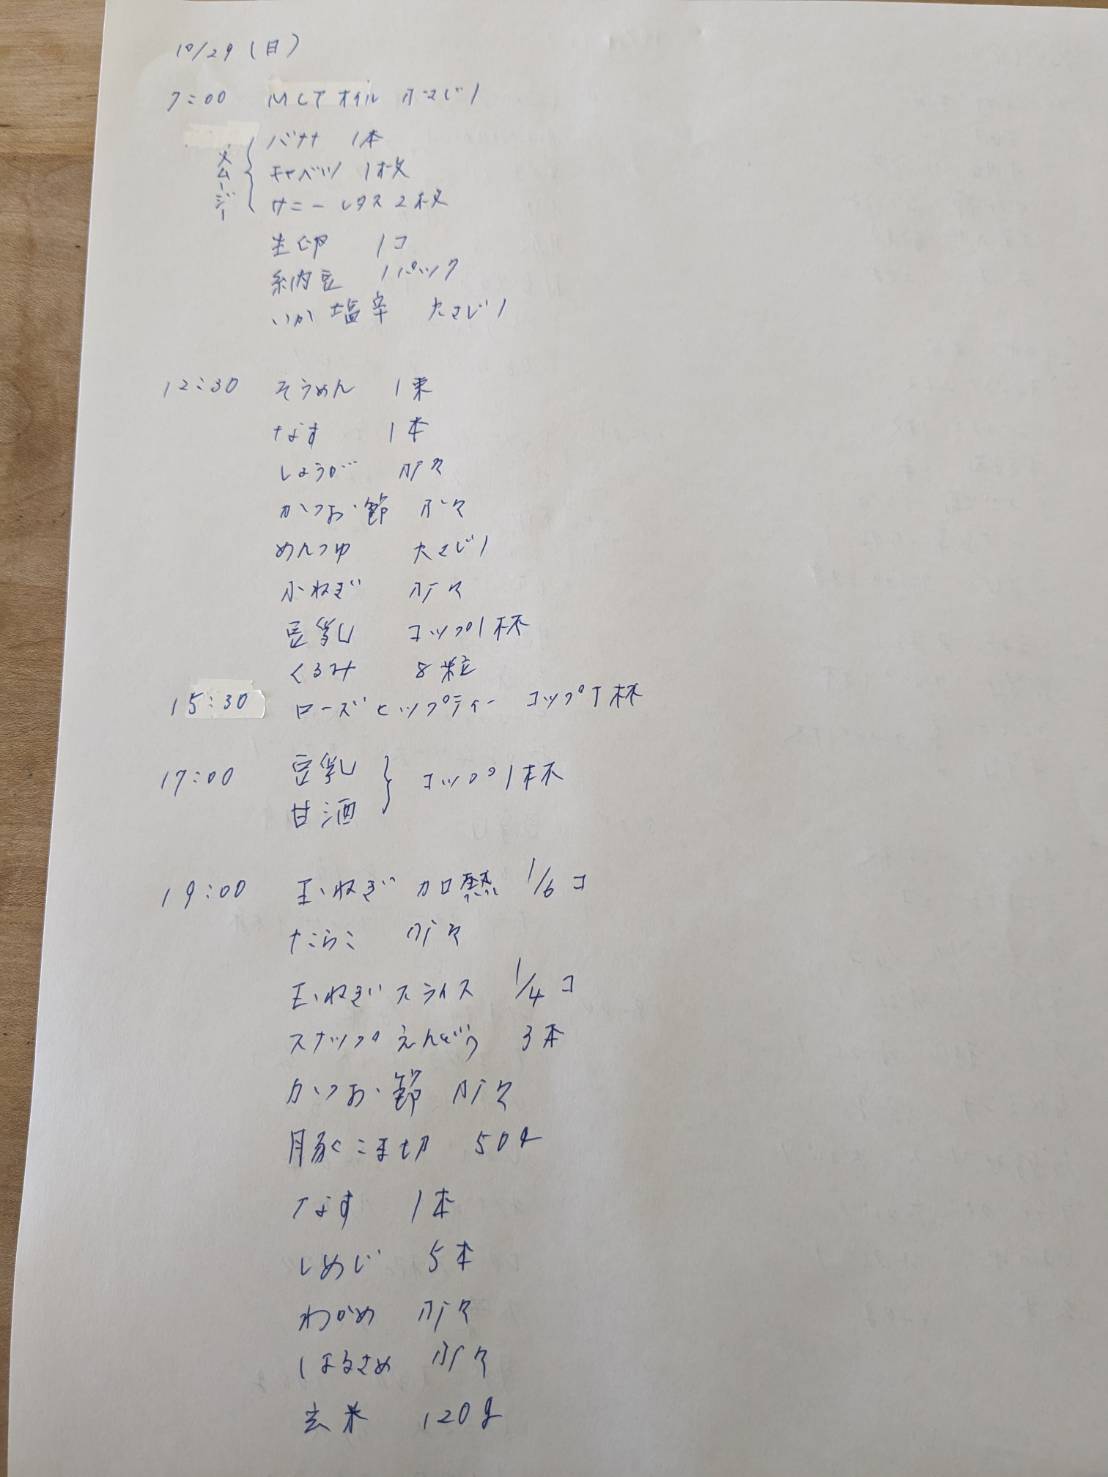 10/29(日)
7:00 MCTオイル 小さじ1
スムージー { バナナ 1本
キャベツ 1枚
サニーレタス 2枚
生卵 1コ
納豆 1パック
いか塩辛 大さじ1
12:30 そうめん 1束
なす 1本
しょうが 少々
かつお節 少々
めんつゆ 大さじ1
小ねぎ 少々
豆乳 コップ1杯
くるみ 8粒
15:30 ローズヒップティー コップ1杯
17:00 豆乳
甘酒 } コップ1杯
19:00 玉ねぎ 加熱 1/6コ
たらこ 少々
玉ねぎスライス 1/4コ
スナップえんどう 3本
かつお節 少々
豚こま切 50g
なす 1本
しめじ 5本
わかめ 少々
はるさめ 少々
玄米 120g